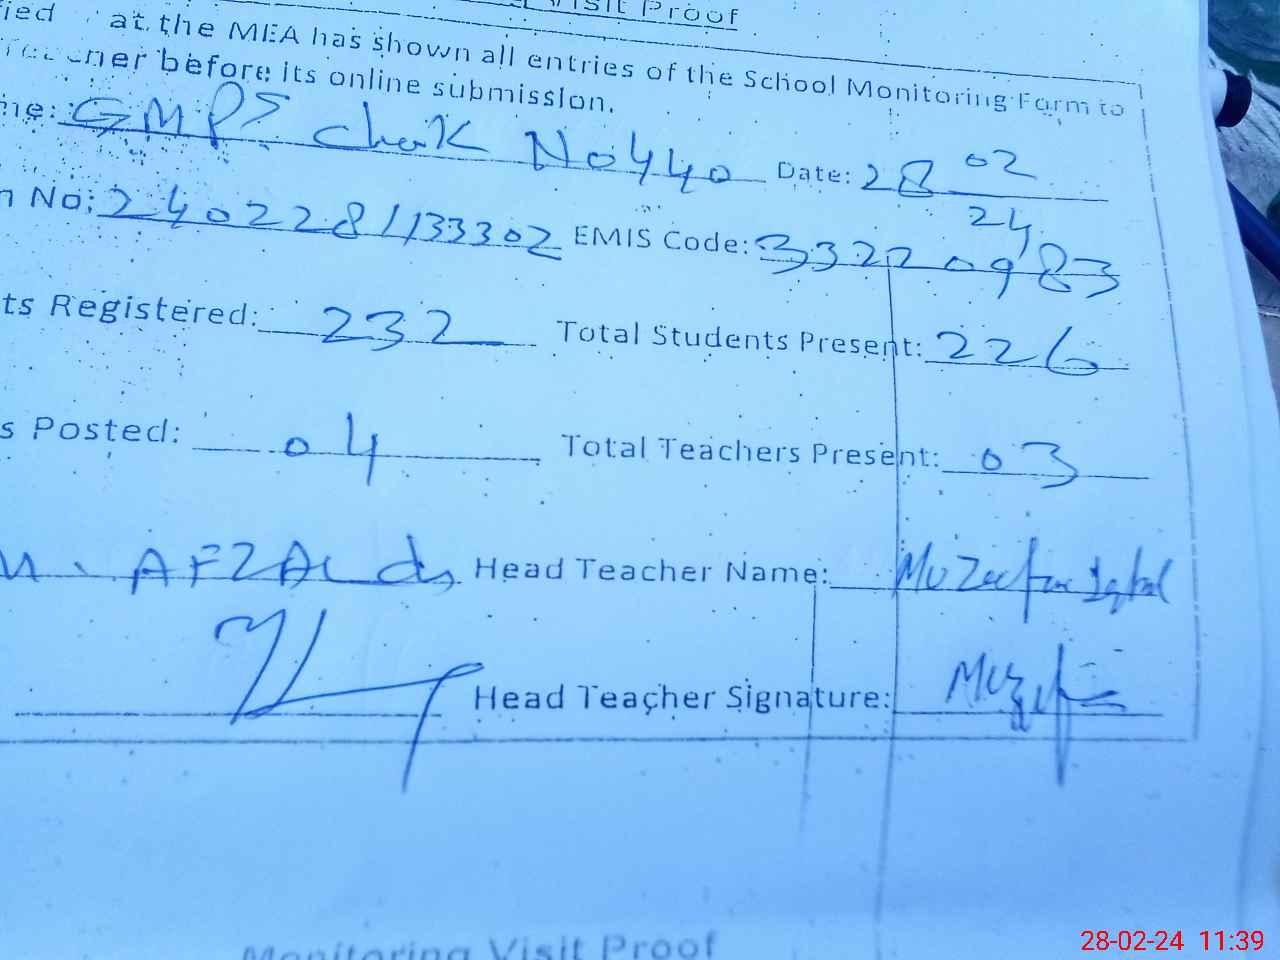 Visit Proof
ied at the MEA has shown all entries of the School Monitoring Form to
before its online submission.
me: GMPS Chak No 440 Date: 28 02 24
n No: 240228/133302 EMIS Code: 33220983
ts Registered: 232 Total Students Present: 226
s Posted: 04 Total Teachers Present: 03
M. AFZAL Head Teacher Name: Muzaffar Iqbal
Head Teacher Signature:
Monitoring Visit Proof
28-02-24 11:39